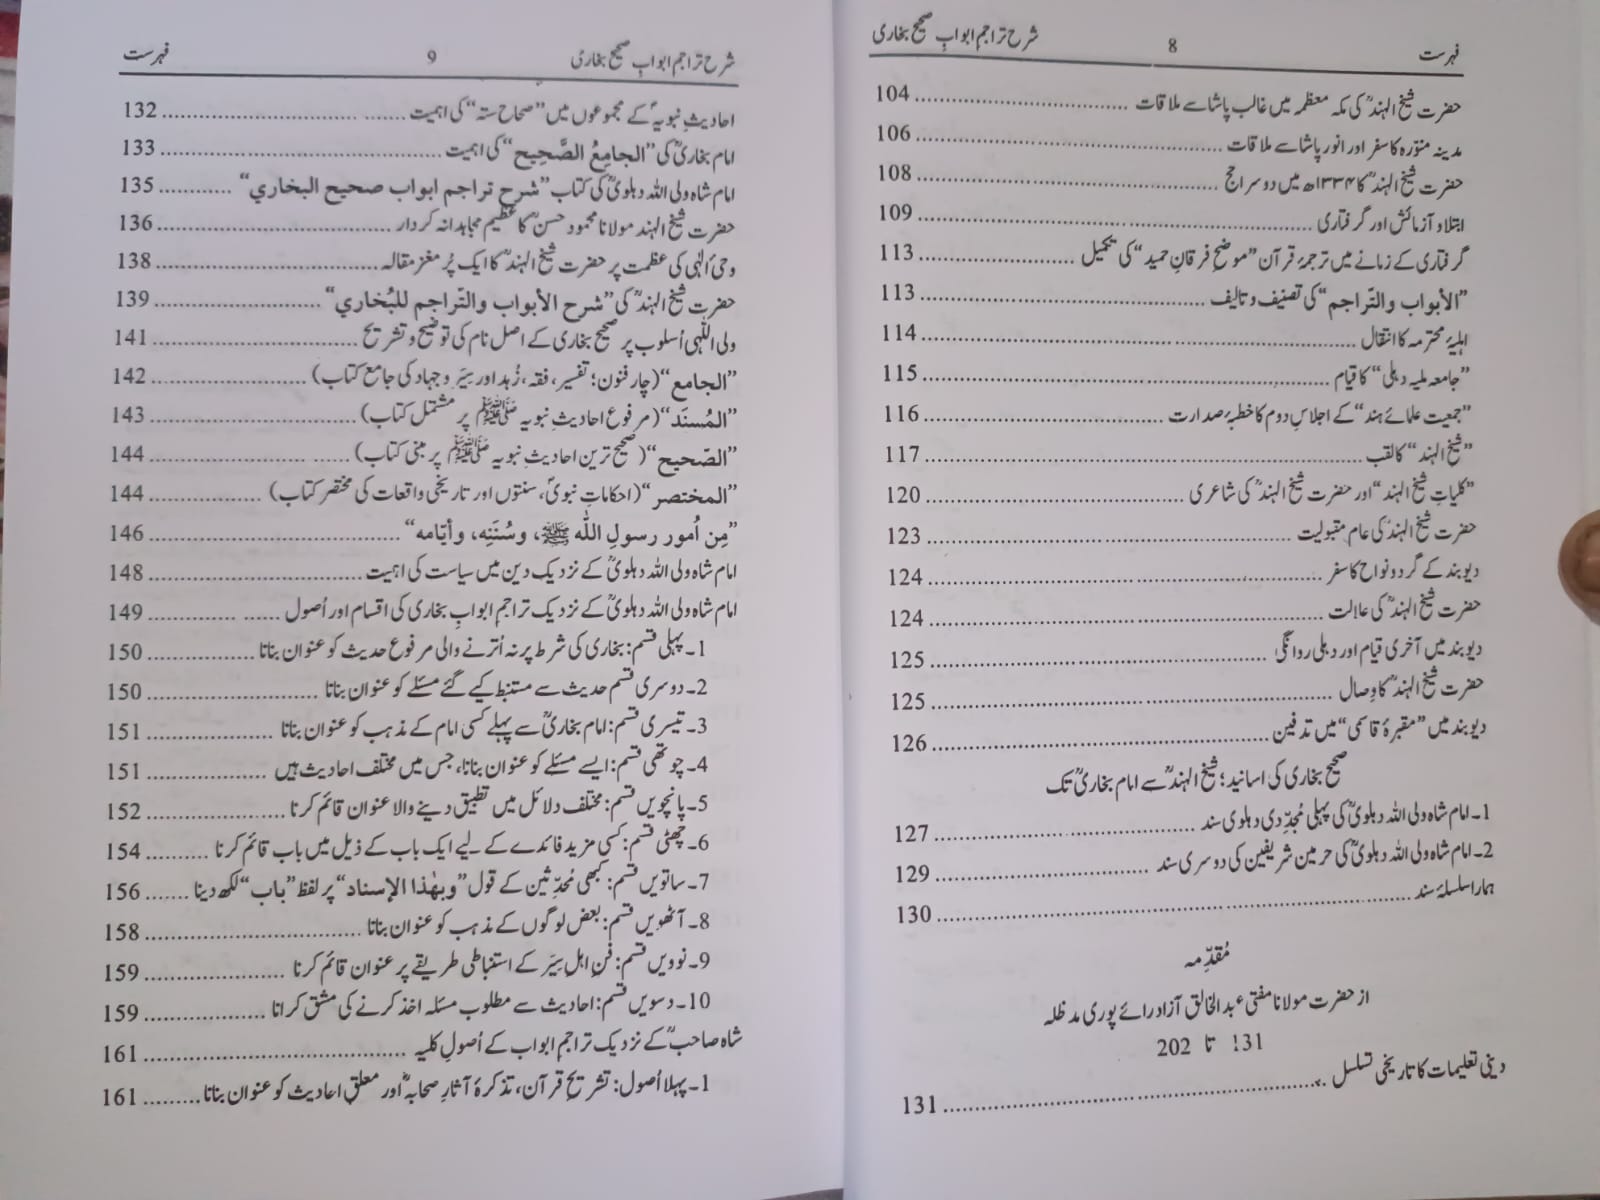 فہرست 8 شرح تراجم ابوابِ صحیح بخاری
حضرت شیخ الہندؒ کی مکہ معظمہ میں غالب پاشا سے ملاقات 104
مدینہ منوّرہ کا سفر اور انور پاشا سے ملاقات 106
حضرت شیخ الہندؒ کا ۱۳۳۴ھ میں دوسرا حج 108
ابتلا و آزمائش اور گرفتاری 109
گرفتاری کے زمانے میں ترجمۂ قرآن ”موضحِ فرقانِ حمید“ کی تکمیل 113
”الأبواب والتّراجم“ کی تصنیف و تالیف 113
اہلیۂ محترمہ کا انتقال 114
”جامعہ ملیہ دہلی“ کا قیام 115
”جمعیت علمائے ہند“ کے اجلاسِ دوم کا خطبۂ صدارت 116
”شیخ الہند“ کا لقب 117
”کلیاتِ شیخ الہند“ اور حضرت شیخ الہندؒ کی شاعری 120
حضرت شیخ الہندؒ کی عام مقبولیت 123
دیوبند کے گرد و نواح کا سفر 124
حضرت شیخ الہندؒ کی علالت 124
دیوبند میں آخری قیام اور دہلی روانگی 125
حضرت شیخ الہندؒ کا وِصال 125
دیوبند میں ”مقبرۂ قاسمی“ میں تدفین 126
صحیح بخاری کی اسانید؛ شیخ الہندؒ سے امام بخاریؒ تک
1۔ امام شاہ ولی اللہ دہلویؒ کی پہلی مُجدِّدی دہلوی سند 127
2۔ امام شاہ ولی اللہ دہلویؒ کی حرمین شریفین کی دوسری سند 129
ہمارا سلسلۂ سند 130
مُقدِّمہ
از حضرت مولانا مفتی عبدالخالق آزاد رائے پوری مدظلہ
131 تا 202
دینی تعلیمات کا تاریخی تسلسل 131
شرح تراجم ابوابِ صحیح بخاری 9 فہرست
احادیثِ نبویہؐ کے مجموعوں میں ”صحاح ستہ“ کی اہمیت 132
امام بخاریؒ کی ”الجامِعُ الصَّحِیح“ کی اہمیت 133
امام شاہ ولی اللہ دہلویؒ کی کتاب ”شرح تراجم ابواب صحیح البخاري“ 135
حضرت شیخ الہند مولانا محمود حسنؒ کا عظیم مجاہدانہ کردار 136
وحیٔ الٰہی کی عظمت پر حضرت شیخ الہندؒ کا ایک پُرمغز مقالہ 138
حضرت شیخ الہندؒ کی ”شرح الأبواب والتّراجم للبُخاري“ 139
ولی اللّٰہی اُسلوب پر صحیح بخاری کے اصل نام کی توضیح و تشریح 141
”الجامع“ (چار فنون؛ تفسیر، فقہ، زُہد اور سِیَر و جہاد کی جامع کتاب) 142
”المُسنَد“ (مرفوع احادیثِ نبویہ ﷺ پر مشتمل کتاب) 143
”الصّحیح“ (صحیح ترین احادیثِ نبویہ ﷺ پر مبنی کتاب) 144
”المختصر“ (احکاماتِ نبویؐ، سنتوں اور تاریخی واقعات کی مختصر کتاب) 144
”مِن اُمور رسولِ اللّٰه ﷺ، وسُنَنِه، وأیّامه“ 146
امام شاہ ولی اللہ دہلویؒ کے نزدیک دین میں سیاست کی اہمیت 148
امام شاہ ولی اللہ دہلویؒ کے نزدیک تراجم ابوابِ بخاری کی اقسام اور اُصول 149
1۔ پہلی قسم: بخاری کی شرط پر نہ اُترنے والی مرفوع حدیث کو عنوان بنانا 150
2۔ دوسری قسم حدیث سے مستنبط کیے گئے مسئلے کو عنوان بنانا 150
3۔ تیسری قسم: امام بخاریؒ سے پہلے کسی امام کے مذہب کو عنوان بنانا 151
4۔ چوتھی قسم: ایسے مسئلے کو عنوان بنانا، جس میں مختلف احادیث ہیں 151
5۔ پانچویں قسم: مختلف دلائل میں تطبیق دینے والا عنوان قائم کرنا 152
6۔ چھٹی قسم: کسی مزید فائدے کے لیے ایک باب کے ذیل میں باب قائم کرنا 154
7۔ ساتویں قسم: کبھی مُحدِّثین کے قول ”وبهٰذا الإسناد“ پر لفظ ”باب“ لکھ دینا 156
8۔ آٹھویں قسم: بعض لوگوں کے مذہب کو عنوان بنانا 158
9۔ نوویں قسم: فنِ اہلِ سِیَر کے استنباطی طریقے پر عنوان قائم کرنا 159
10۔ دسویں قسم: احادیث سے مطلوب مسئلہ اخذ کرنے کی مشق کرانا 159
شاہ صاحبؒ کے نزدیک تراجمِ ابواب کے اُصولِ کلیہ 161
1۔ پہلا اُصول: تشریحِ قرآن، تذکرۂ آثارِ صحابہؓ اور معلق احادیث کو عنوان بنانا 161